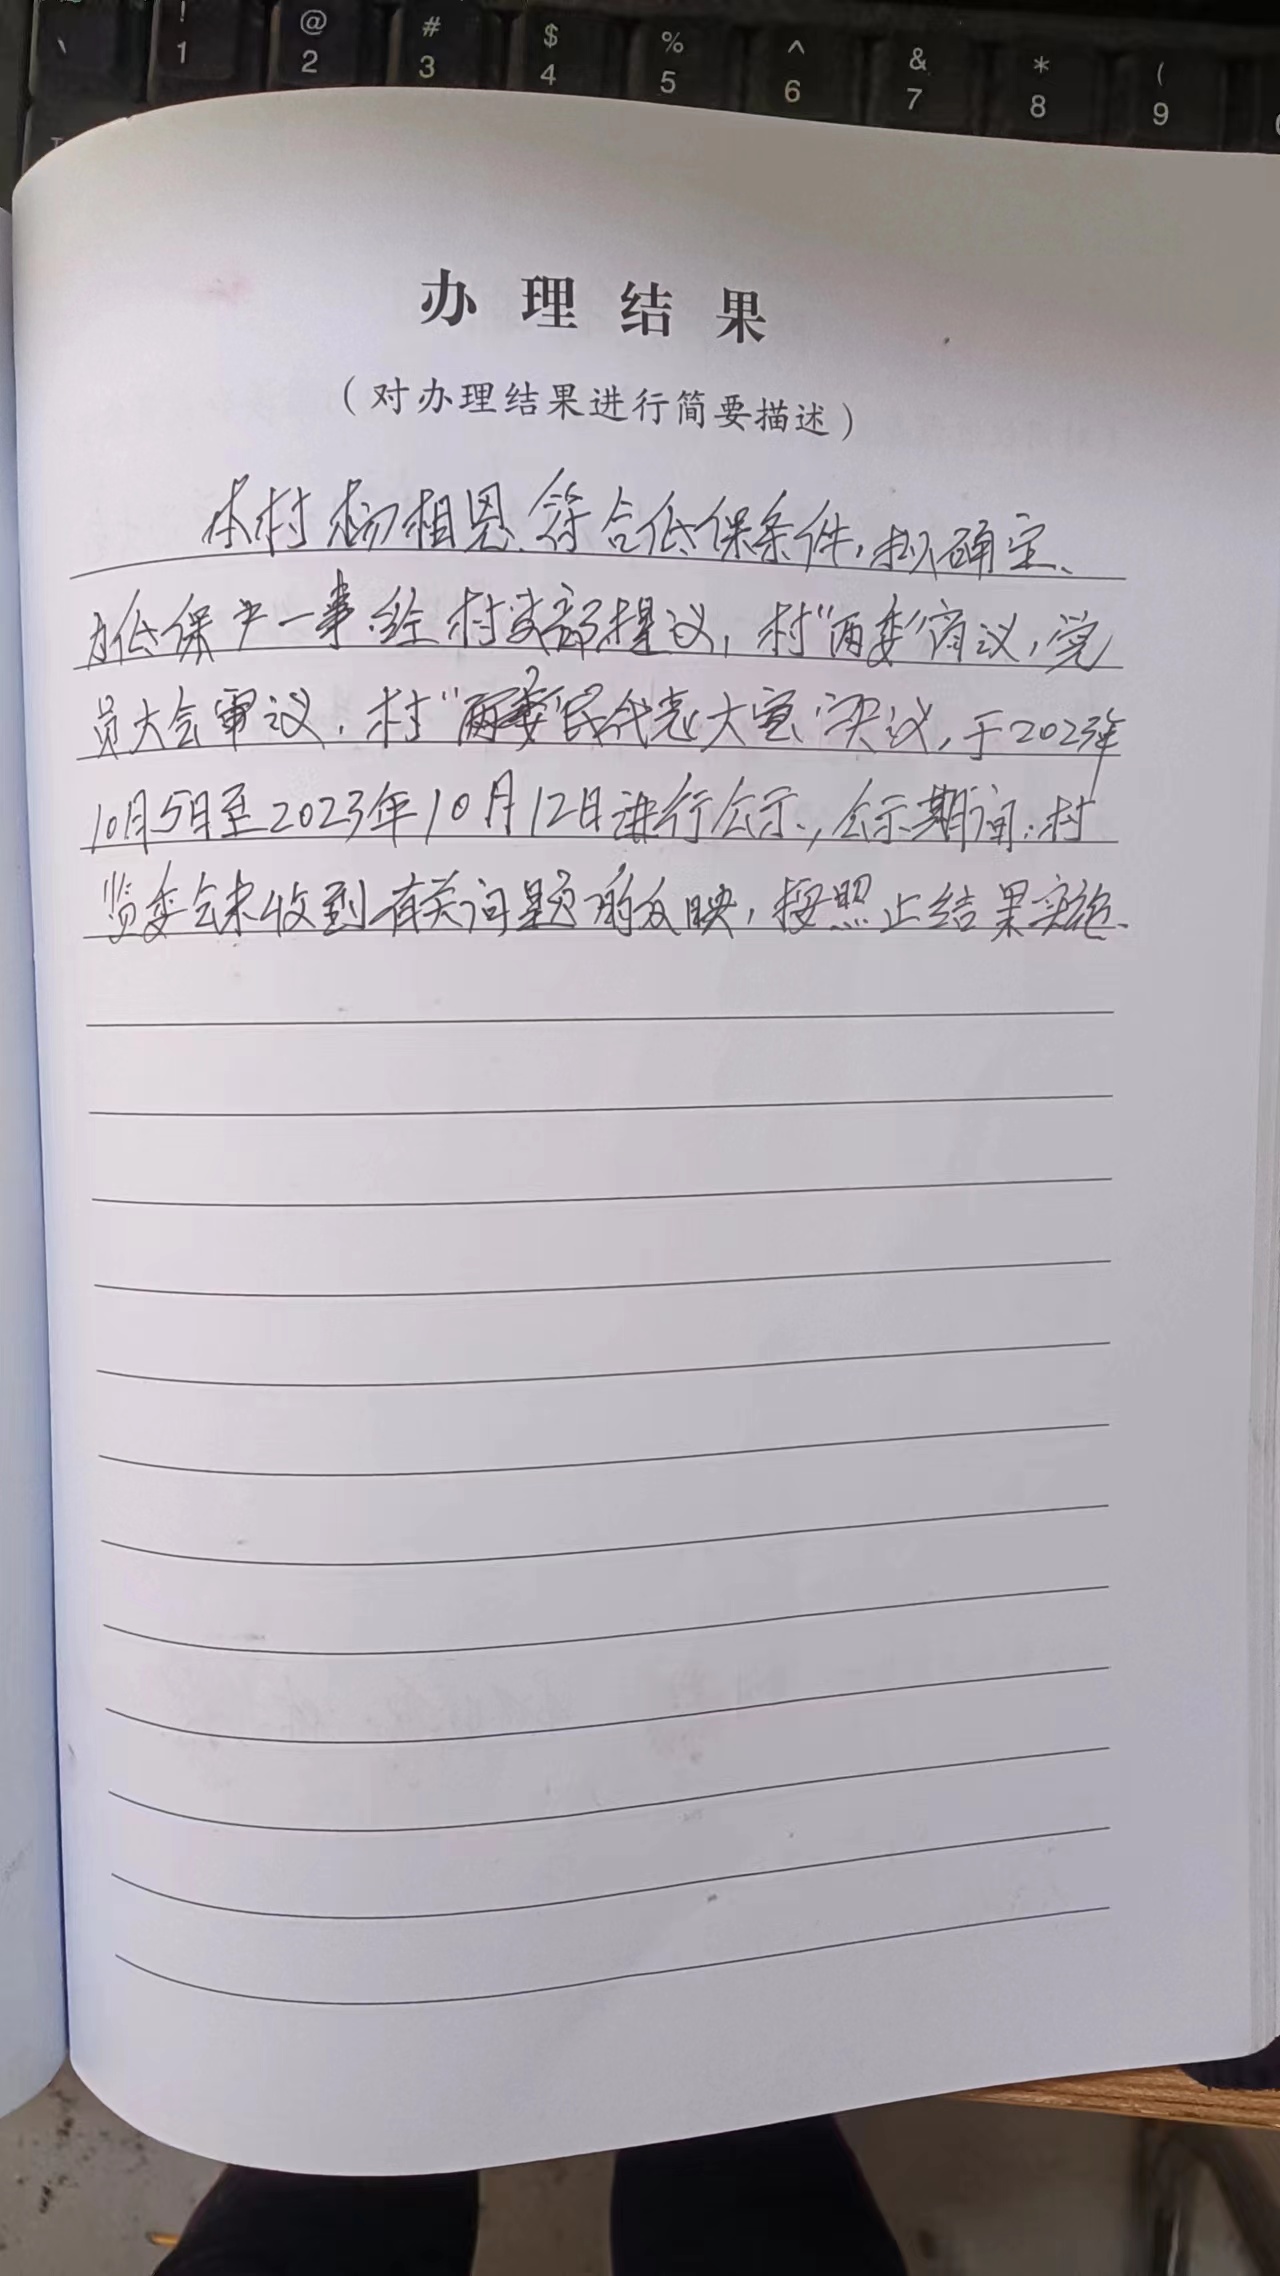 ! @ # $ % ^ & * (
\ 1 2 3 4 5 6 7 8 9
办理结果
（对办理结果进行简要描述）
本村杨相恩、符合低保条件，拟确定、
为低保户一事.经村支部提议，村“两委”商议，党
员大会审议，村民代表大会决议，于2023年
10月5日至2023年10月12日进行公示，公示期间，村
监委会未收到有关问题的反映，按照上结果实施.